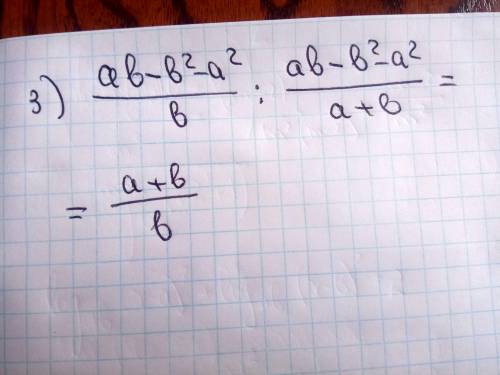 3) (ab-b²-a²)/b : (ab-b²-a²)/(a+b) =
= (a+b)/b